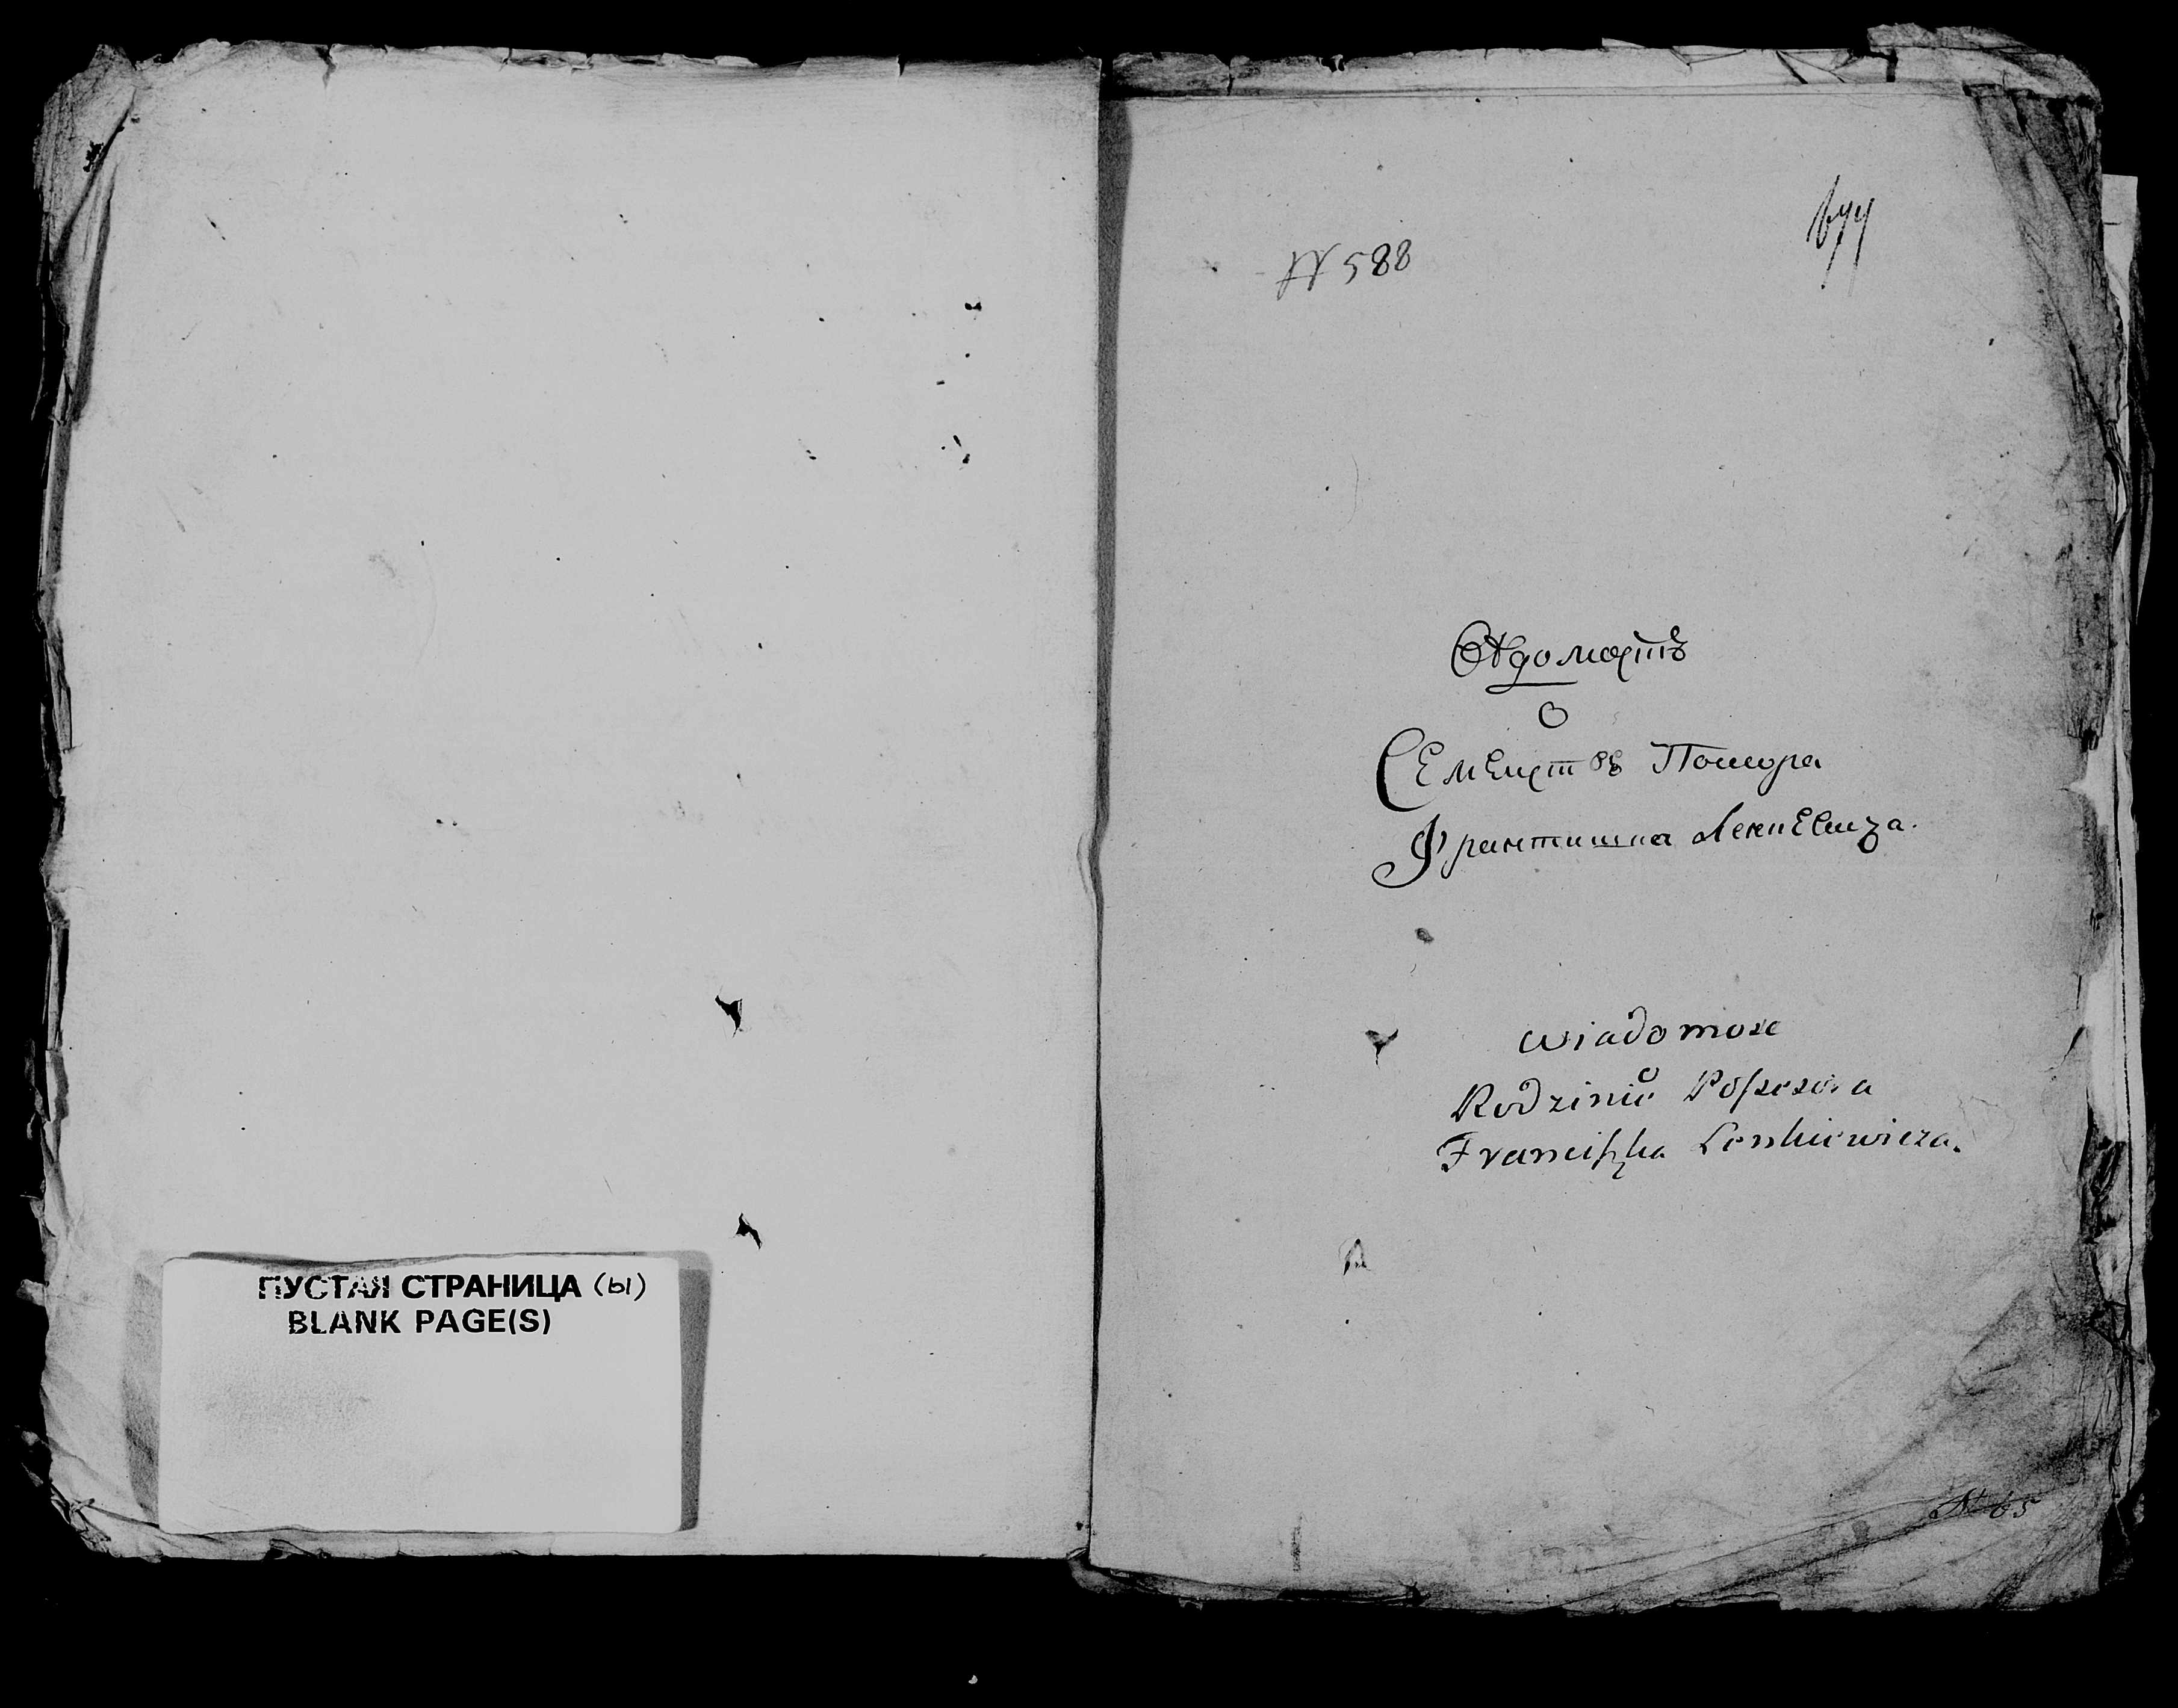 ПУСТАЯ СТРАНИЦА (ы)
BLANK PAGE(S)
№ 588
677
Вѣдомость
О
Семействѣ Посесора
Францишка Ленкевича.
Wiadomosc
O
Rodzinie Possesora
Franciszka Lenkiewicza.
№ 65